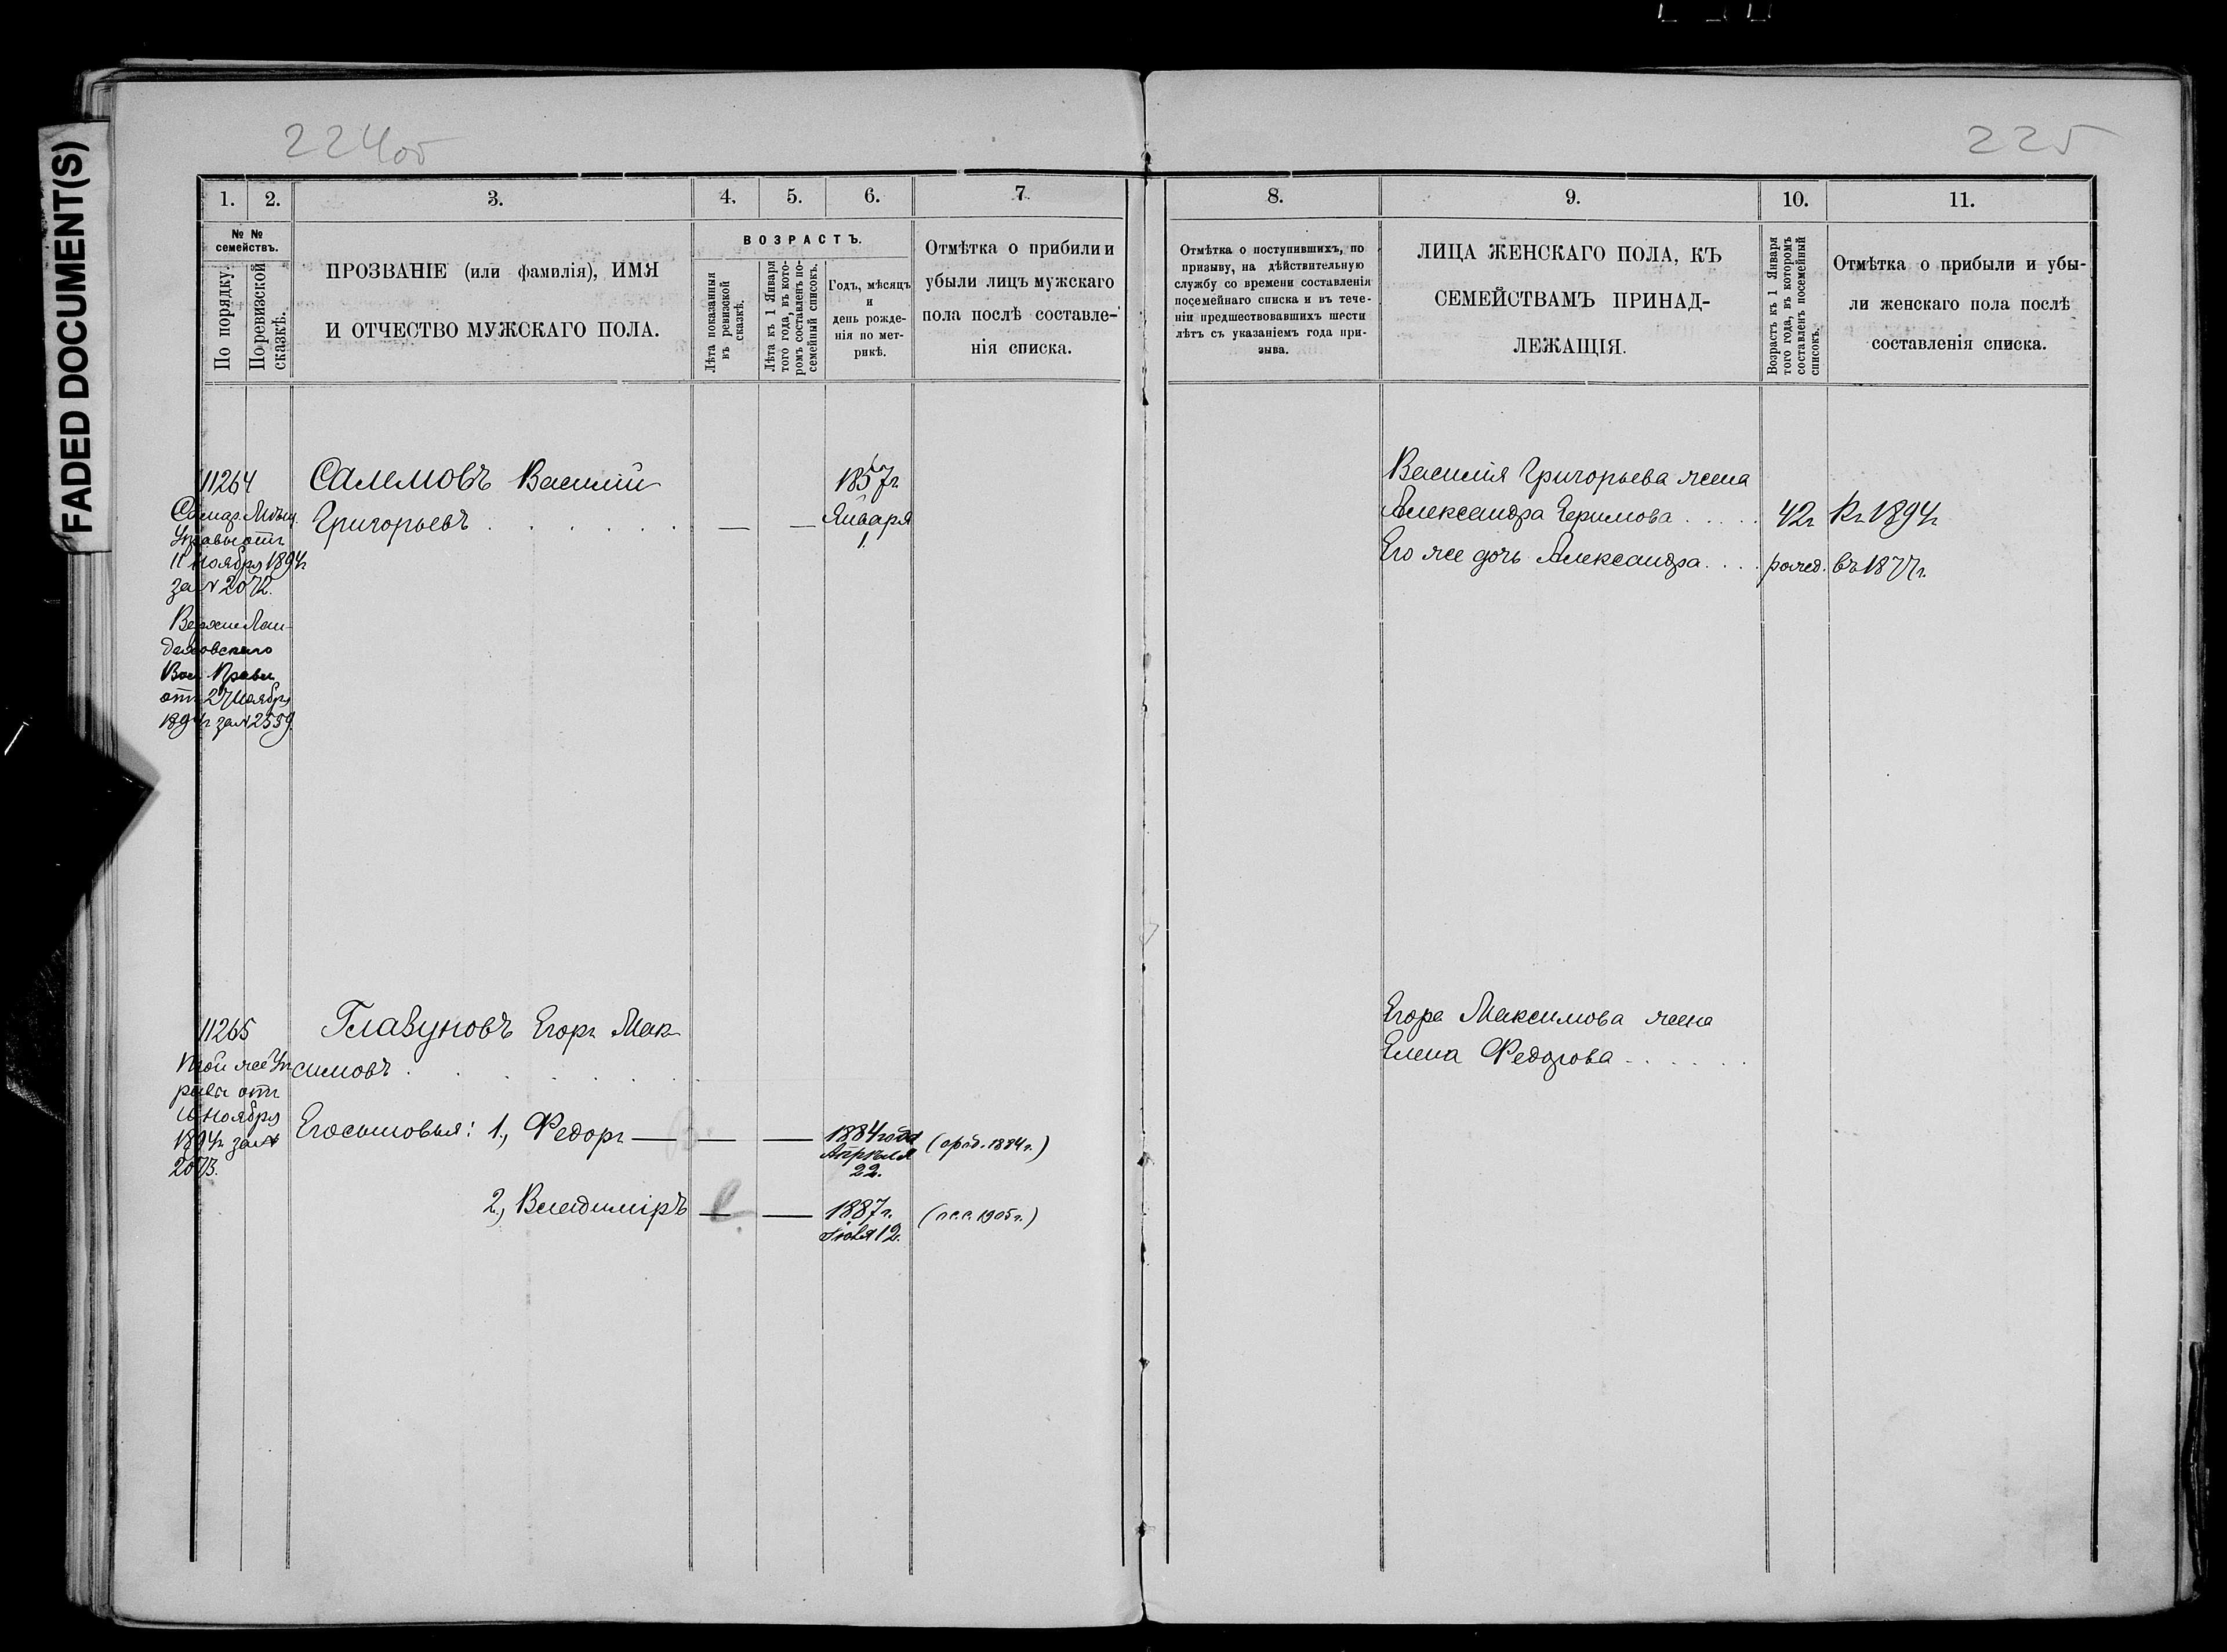 FADED DOCUMENT(S)
224об
225
1.
2.
3.
4.
5.
6.
7.
8.
9.
10.
11.
№ №
семействъ.
По порядку.
По ревизской
сказкѣ.
ПРОЗВАНІЕ (или фамилія), ИМЯ
И ОТЧЕСТВО МУЖСКАГО ПОЛА.
ВОЗРАСТЪ.
Лѣта показанныя
въ ревизской
сказкѣ.
Лѣта къ 1 Января
того года, въ кото-
ромъ составленъ по-
семейный списокъ.
Годъ, мѣсяцъ
и
день рожде-
нія по мет-
рикѣ.
Отмѣтка о прибыли и
убыли лицъ мужскаго
пола послѣ составле-
нія списка.
Отмѣтка о поступившихъ, по
призыву, на дѣйствительную
службу со времени составленія
посемейнаго списка и въ тече-
ніи предшествовавшихъ шести
лѣтъ съ указаніемъ года при-
зыва.
ЛИЦА ЖЕНСКАГО ПОЛА, КЪ
СЕМЕЙСТВАМЪ ПРИНАД-
ЛЕЖАЩІЯ.
Возрастъ къ 1 Января
того года, въ которомъ
составленъ посемейный
списокъ.
Отмѣтка о прибыли и убы-
ли женскаго пола послѣ
составленія списка.
11264
Самар. Мѣщ.
Управы отъ
11 Ноября 1894г
за № 2072.
Верхне Лан-
Вол. Правл
отъ 27 Ноября
1894г за № 2559.
Салемовъ Василій
Григорьевъ . . . . . . — —
1857г
Января
1.
Василія Григорьева жена
Александра Ефимова . . . . . 42г Къ 1894г
Его же дочь Александра . . . . рожд. въ 1877г.
11265
Той же Уп
равы отъ
11 Ноября
1894г за №
2073.
Глазуновъ Егоръ Мак
симовъ . . . . . . .
Его сыновья: 1., Федоръ — — —
1884 года
Апрѣля
22.
(1884г.)
2., Владиміръ — —
1887г.
Іюля 12.
(п.с.с. 1905г.)
Егора Максимова жена
Елена Федорова . . . . . .